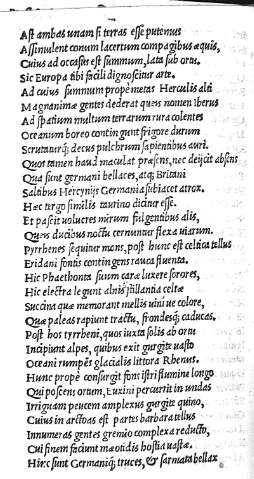 Ast ambas unam si terras esse putemus
Assimulent conum lacertum compagibus æquis,
Cuius ad occasus est summum, lata sub ortu.
Sic Europa tibi facili dignoscitur arte.
Ad cuius summum prope metas Herculis alti
Magnanimæ gentes dederat ques nomen Iberus
Ad spatium multum terrarum rura colentes
Oceanum boreo contingunt frigore durum
Scrutaturq; decus pulchrum sapientibus auri.
Quos tamen haud maculat præsens, nec deijcit absens
Qua sunt germani bellaces, atq; Britani
Saltibus Hercynijs Germania subiacet atrox.
Hæc tergo similis taurino dicitur esse.
Et pascit volucres mirum fulgentibus alis,
Quis ducibus noctu cernuntur flexa viarum.
Pyrrhenes sequitur mons, post hunc est celtica tellus
Eridani fontis contingens rauca fluenta.
Hic Phaethonta suum caræ luxere sorores,
Hic electra legunt alnis stillantia celtæ
Succina quæ memorant mellis vini ue colore,
Quæ paleas rapiunt tractu, frondesq; caducas.
Post hos tyrrheni, quos iuxta solis ab ortu
Incipiunt alpes, quibus exit gurgite uasto
Oceani rumpēs glacialis littora Rhenus.
Hunc prope consurgit fons istri flumine longo
Qui poscens ortum, Euxini percurrit in undas
Irriguam peucem amplexus gurgite quino,
Cuius in arctoas est partes barbara tellus
Innumeras gentes gremio complexa reducto,
Cui finem faciunt mæotidis hostia uastæ.
Hinc sunt Germaniq; truces, & sarmata bellax